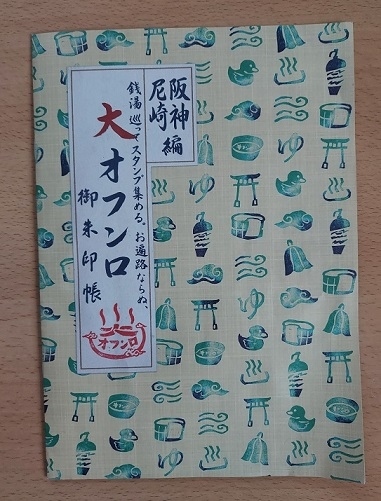 阪神
尼崎 編
銭湯 巡って スタンプ集める。お遍路ならぬ、
大オフンロ
御朱印帳
オフンロ
ゆ
ゆ
ゆ
ゆ